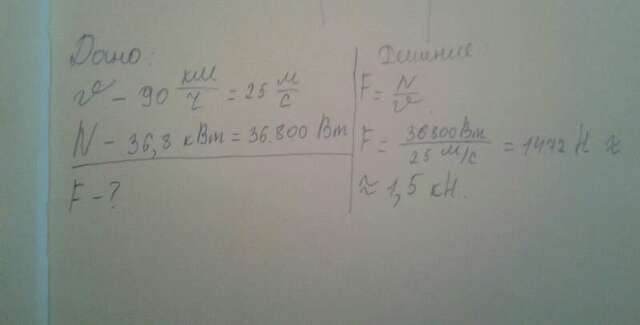 Дано:
v - 90 км/ч = 25 м/с
N - 36,8 кВт = 36.800 Вт
F - ?
Решение
F = N/v
F = 36800Вт/25 м/с = 1472 Н ≈
≈ 1,5 кН.